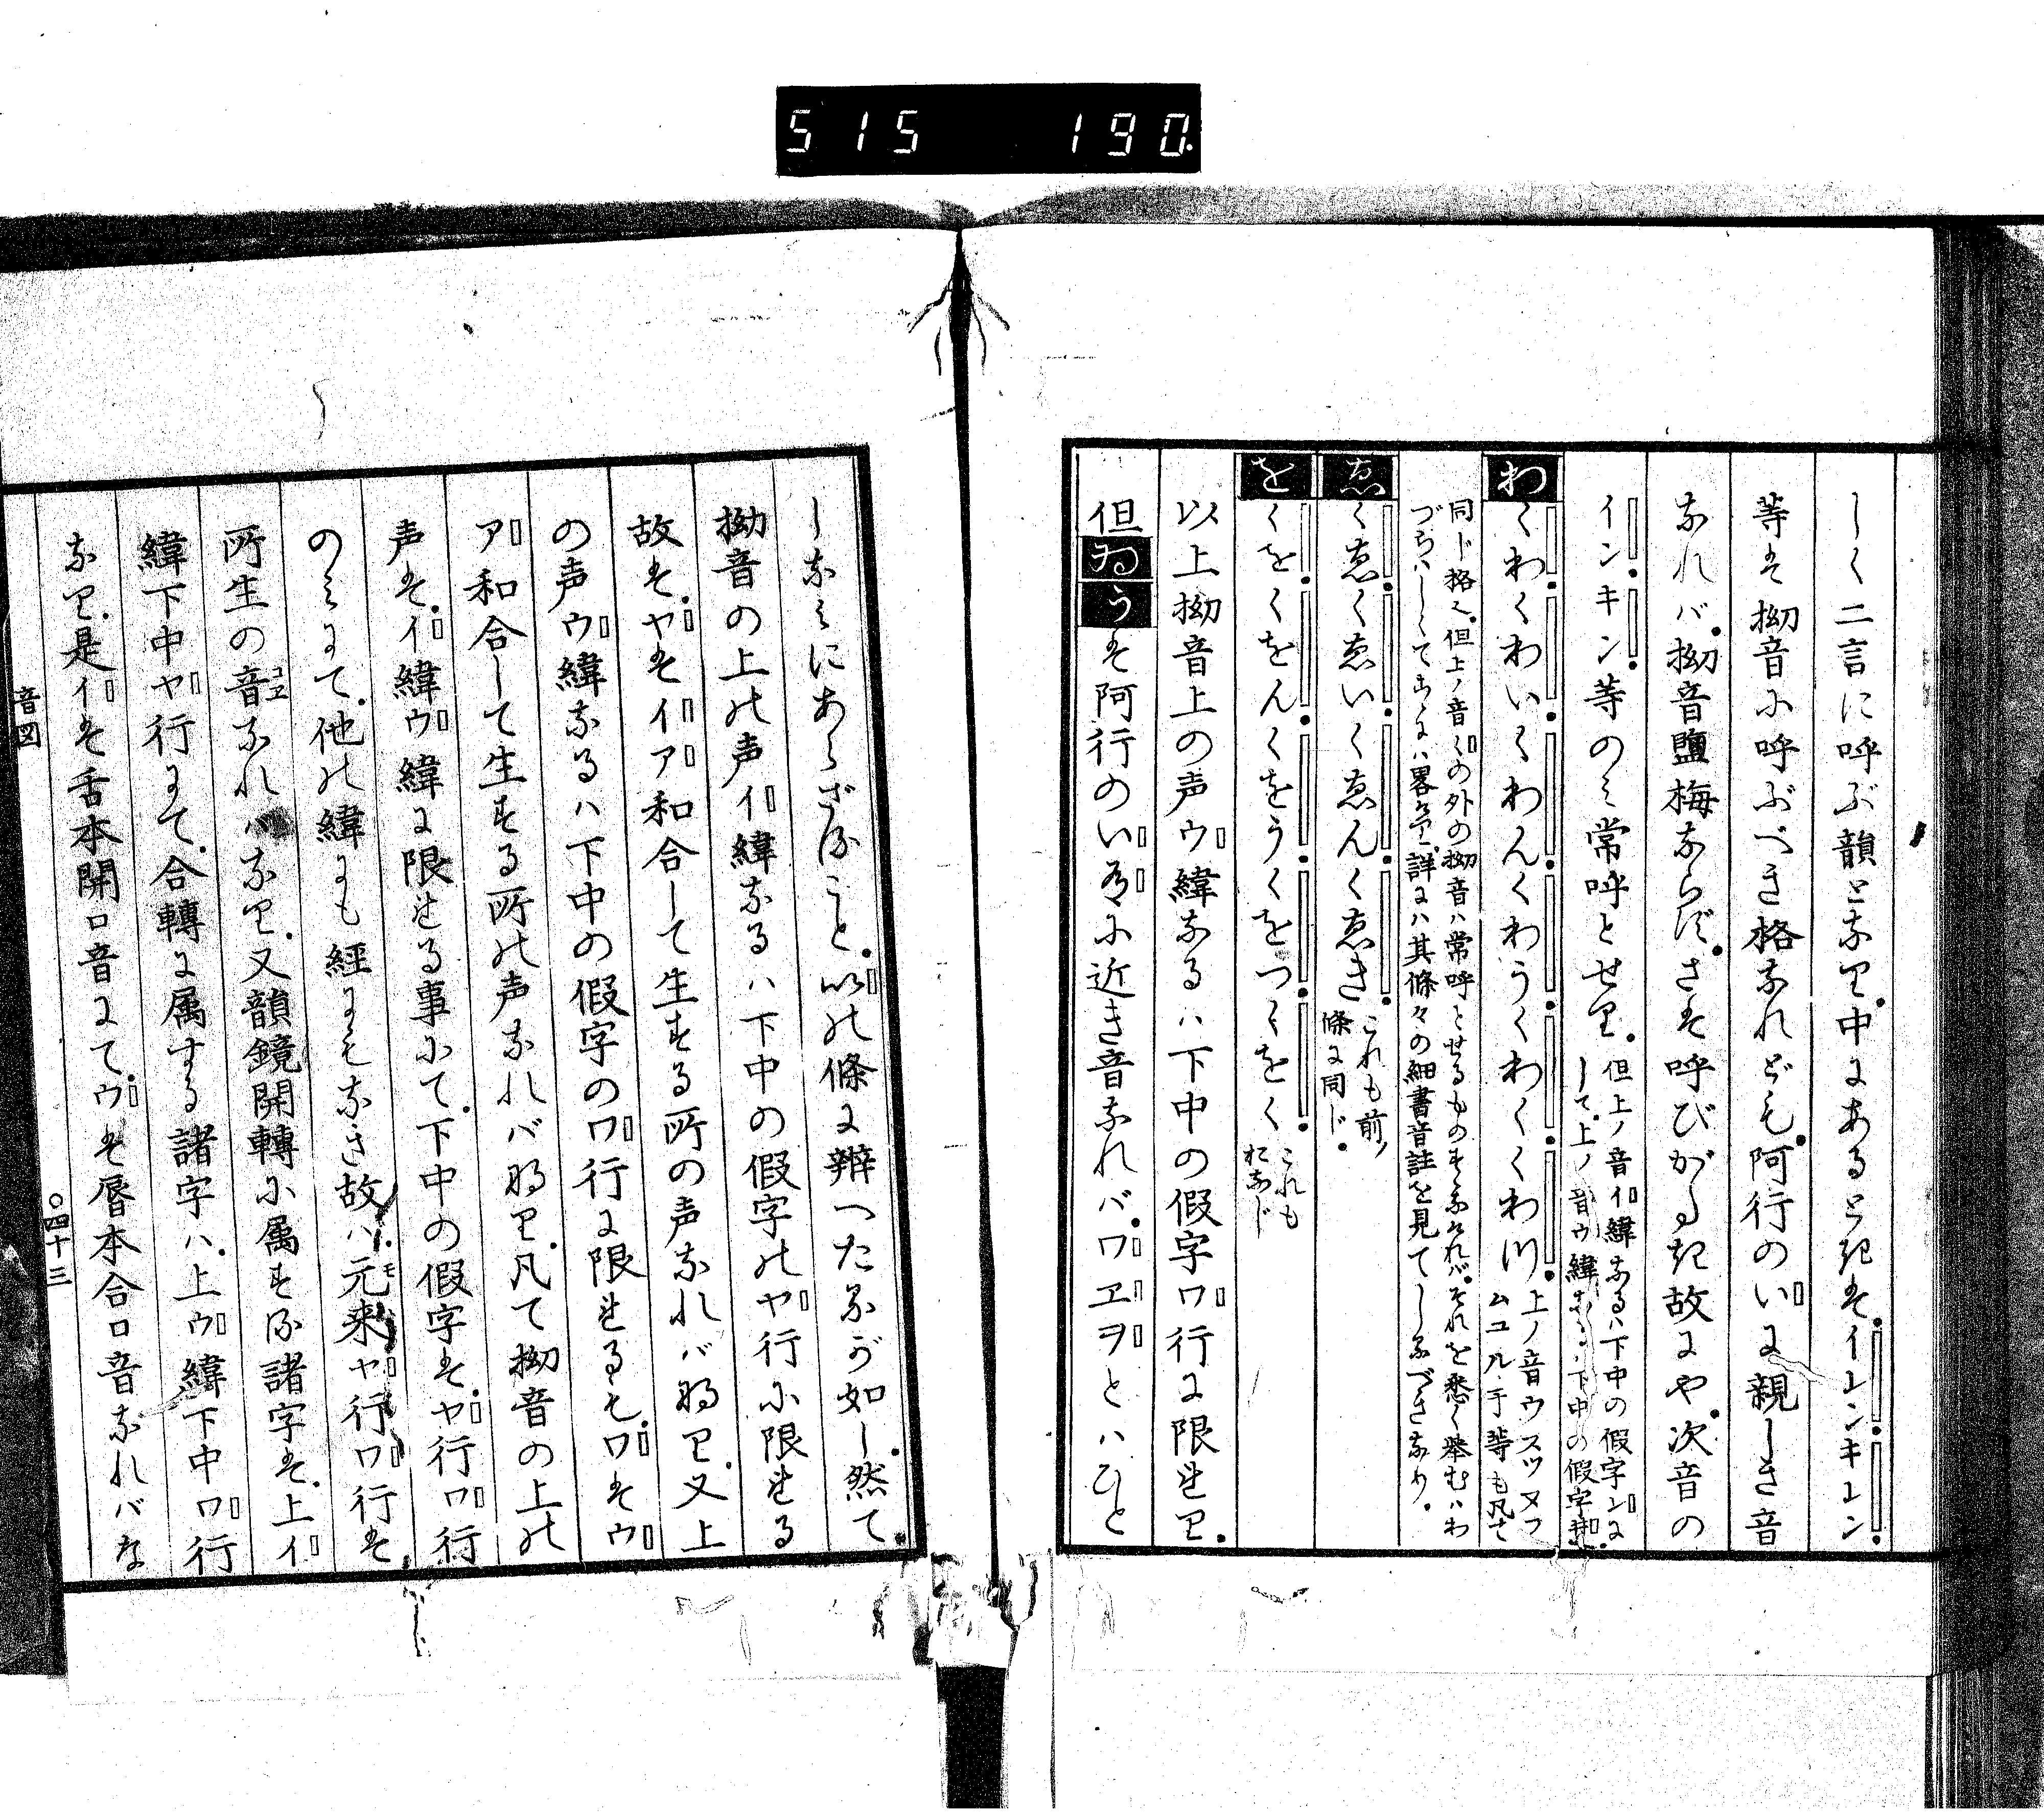 515 190.
しく二言に呼ぶ韻となり。中にあるときはイヰンキヰン。
等は拗音に呼ぶべき格なれども。阿行のいに親しき音
なれバ。拗音鹽梅ならず。さは呼びがたき故にや。次音の
イン。キン。等のミ常呼とせり。
但上ノ音イ緯なるハ下中の假字ンに
して。上ノ音ウ緯
下中の假字ヰ
わ くわ。くわい。くわん。くわう。くわく。くわ川。
上ノ音ウスツヌフ
ムユル于等も凡て
同じ格也。但上ノ音くの外の拗音ハ常呼とせるものすくなけれバ。それを悉く擧むハわ
づらハしくてこゝにハ畧けり。詳にハ其條々の細書音註を見てしるべきなり。
ゑ くゑ。くゑい。くゑん。くゑき。
これも前ノ
條に同じ。
を くを。くをん。くをう。くをつ。くをく。
これも
おなじ
以上拗音上の声ウ緯なるハ下中の假字ワ行に限れり。
但ゐうは阿行のいうに近き音なれバ。ワヱヲとハひと
しなミにあらざること。いの條に辨へたるが如し。然て。
拗音の上の声イ緯なるハ下中の假字のヤ行に限れる
故は。ヤはイア和合して生ずる所の声なれバなり。又上
の声ウ緯なるハ下中の假字のワ行に限れるも。ワはウ
ア和合して生ずる所の声なれバなり。凡て拗音の上の
声は。イ緯ウ緯に限れる事にて。下中の假字は。ヤ行ワ行
のミにて。他の緯にも經にもなき故ハ。元来ヤ行ワ行は
所生の音コヱなれハなり。又韻鏡開轉に属する諸字は。上イ
緯下中ヤ行にて。合轉に属する諸字ハ。上ウ緯下中ワ行
なり。是イは舌本開口音にて。ウは脣本合口音なれバな
音図
○四十三